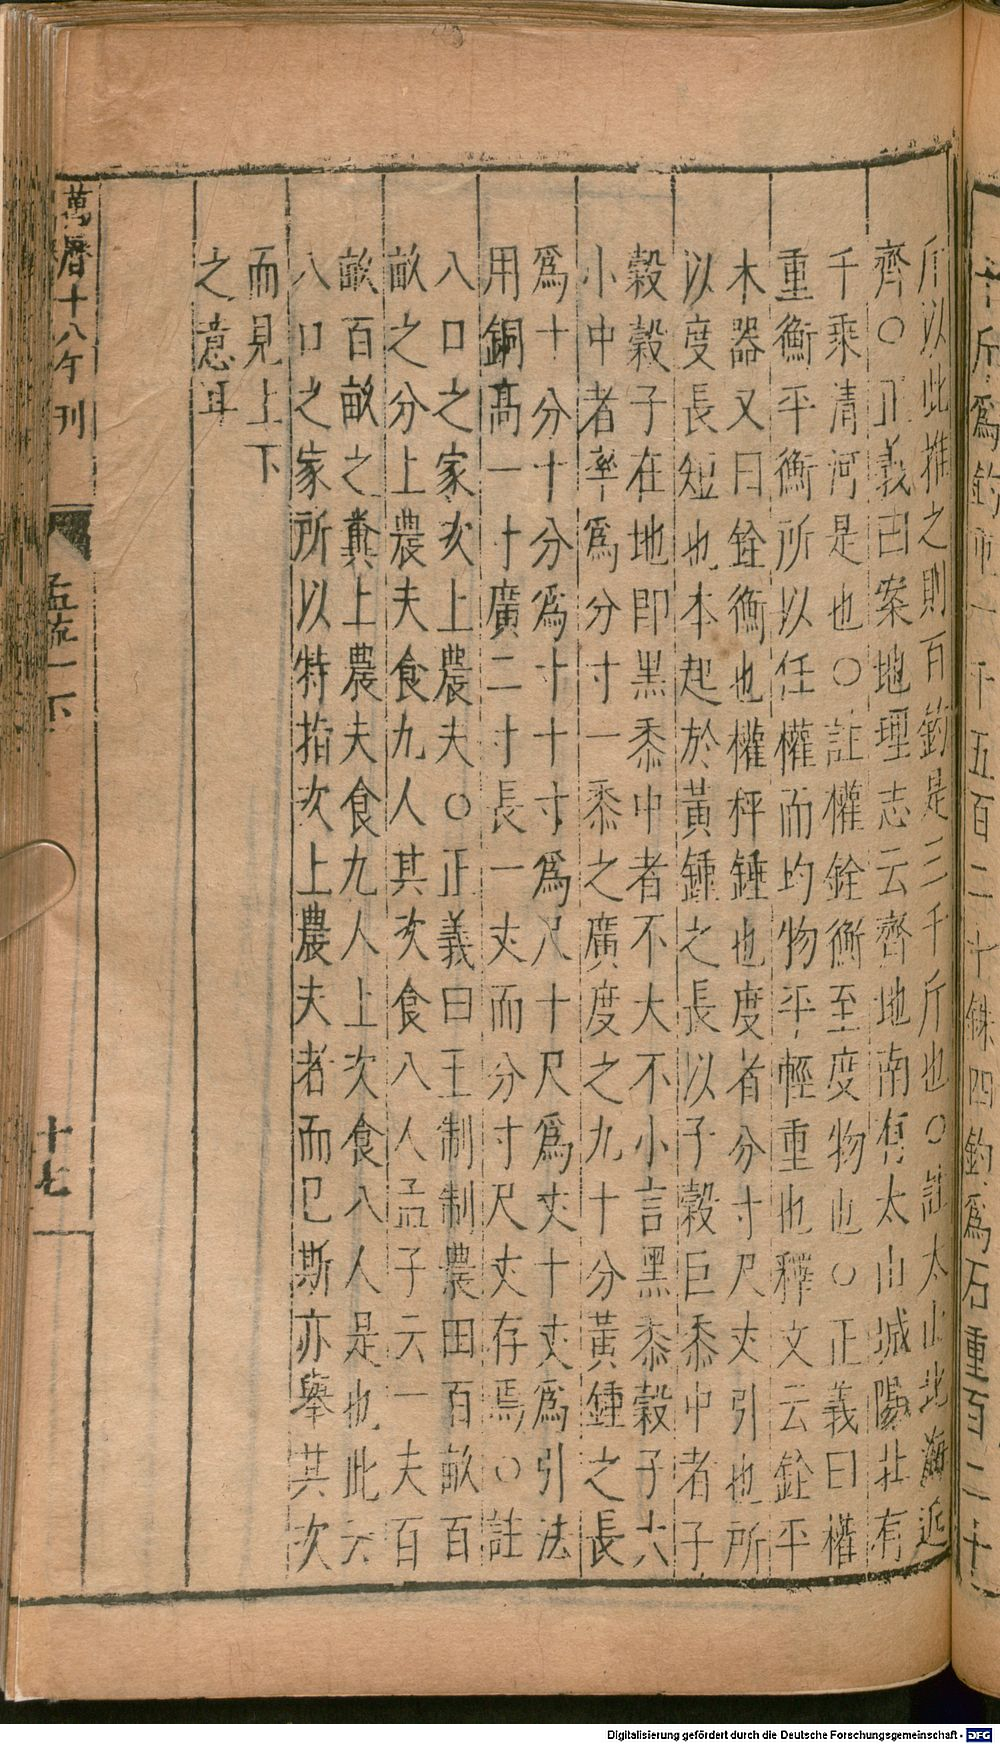 十斤爲鈞重一千五百二十銖四鈞爲石重百二十
斤以此推之則百鈞是三千斤也○註太山北海近
齊○正義曰案地理志云齊地南有太山城陽北有
千乘清河是也○註權銓衡至度物也○正義曰權
重衡平衡所以任權而均物平輕重也釋文云銓平
木器又曰銓衡也權枰錘也度者分寸尺丈引也所
以度長短也本起於黃鍾之長以子穀巨黍中者子
穀穀子在地即黑黍中者不大不小言黑黍穀子六
小中者率爲分寸一黍之廣度之九十分黃鍾之長
爲十分十分爲寸十寸爲尺十尺爲丈十丈爲引法
用銅高一寸廣二寸長一丈而分寸尺丈存焉○註
八口之家次上農夫○正義曰王制制農田百畝百
畝之分上農夫食九人其次食八人孟子云一夫百
畝百畝之糞上農夫食九人上次食八人是也此云
八口之家所以特指次上農夫者而已斯亦舉其次
而見上下
之意耳
萬曆十八年刊
孟疏一下
十七
Digitalisierung gefördert durch die Deutsche Forschungsgemeinschaft - DFG